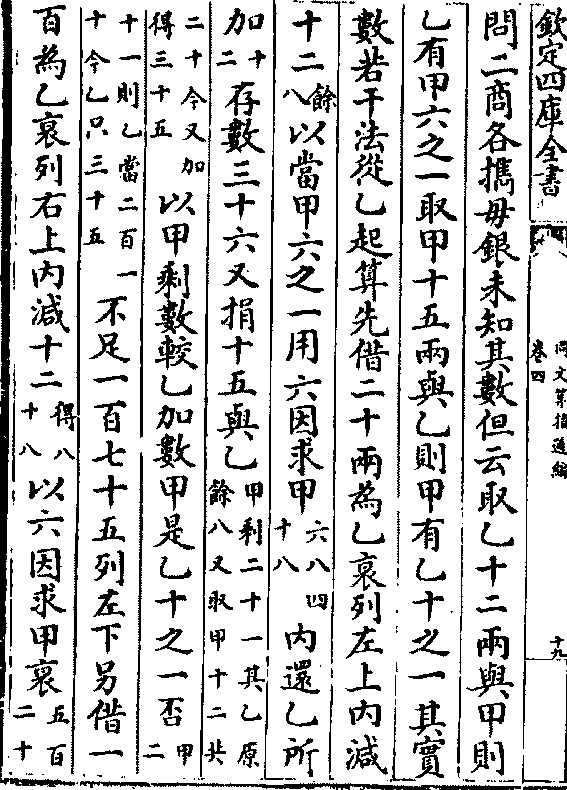 欽定四庫全書
同文算指通編
卷四
十九
問二商各攜毋銀未知其數但云取乙十二兩與甲則
乙有甲六之一取甲十五兩與乙則甲有乙十之一其實
數若干法從乙起算先借二十兩為乙衰列左上內減
十二餘八以當甲六之一用六因求甲六八四十八內還乙所
加十二存數三十六又捐十五與乙甲剩二十一其乙原餘八又取甲十二共
二十今又加得三十五以甲剩數較乙加數甲是乙十之一否甲二
十一則乙當二百一十今乙只三十五不足一百七十五列左下另借一
百為乙衰列右上內減十二得八十八以六因求甲衰五百二十